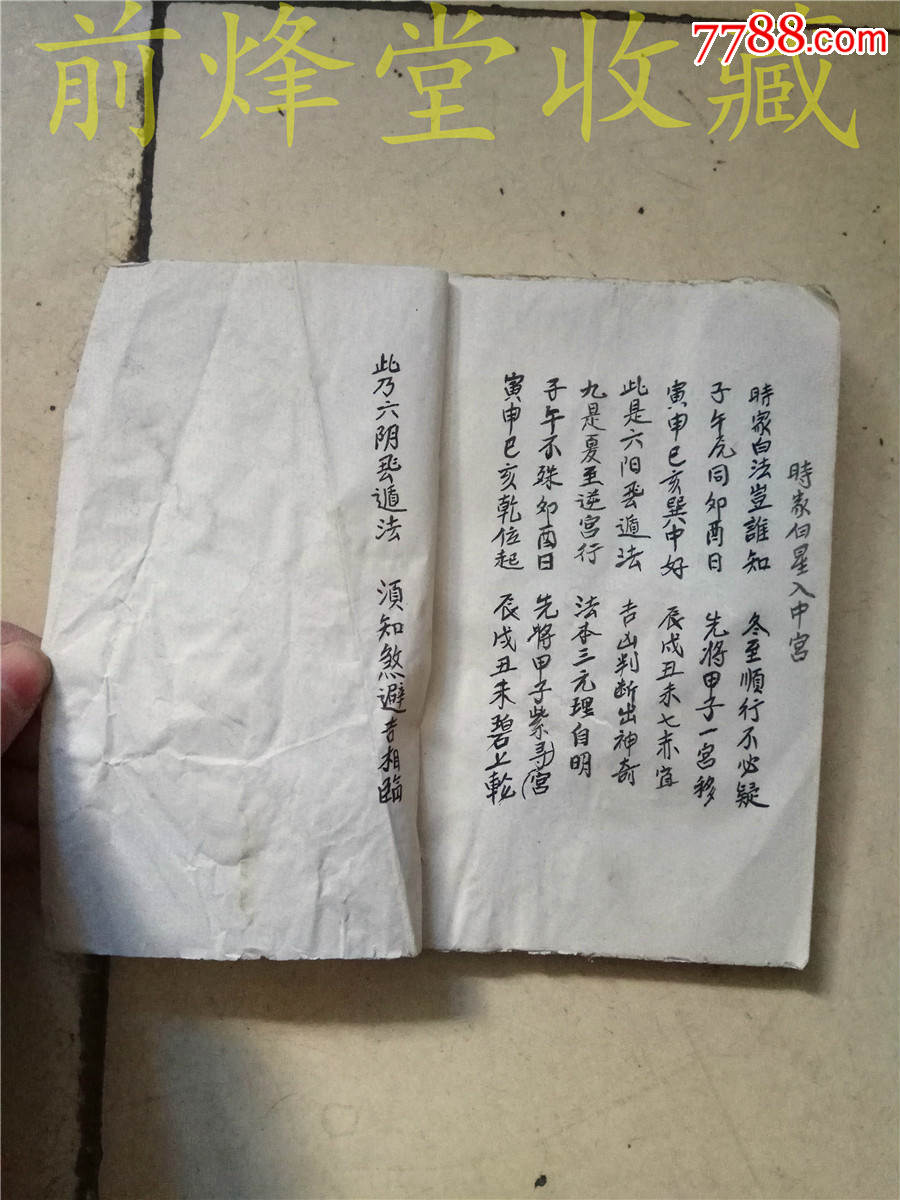 前烽堂收藏
7788.com
時家白星入中宮
時家白法豈誰知 冬至順行不必疑
子午元同卯酉日 先将甲子一宮移
寅申巳亥巽中好 辰戌丑未七赤宜
此是六阳飛遁法 吉凶判断出神奇
九是夏至逆宮行 法本三元理自明
子午不殊卯酉日 先将甲子紫宮尋
寅申巳亥乾位起 辰戌丑未碧上輪
此乃六阴飛遁法 須知煞避吉相臨